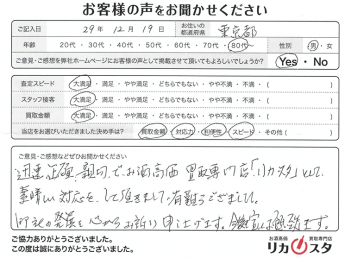 お客様の声をお聞かせください
ご記入日 29年 12月 19日 お住いの都道府県 東京都
年齢 20代・30代・40代・50代・60代・70代・80代~ 性別 男・女
ご意見・ご感想を弊社ホームページにお客様の声として掲載させて頂いてもよろしいでしょうか? Yes・No
査定スピード 大満足・満足・やや満足・どちらでもない・やや不満・不満・( )
スタッフ接客 大満足・満足・やや満足・どちらでもない・やや不満・不満・( )
買取金額 大満足・満足・やや満足・どちらでもない・やや不満・不満・( )
当店をお選びいただきました決め手は? 買取金額・対応力・利便性・スピード・その他( )
ご意見・ご感想などぜひお聞かせください
迅速、正確、親切でお酒高価買取専門店「リカスタ」として
素晴しい対応をして頂きまして有難うございました。
御社の発展を心からお祈り申し上げます。
ご協力ありがとうございました。
この度は誠にありがとうございました。
お酒高価 買取専門店
リカスタ